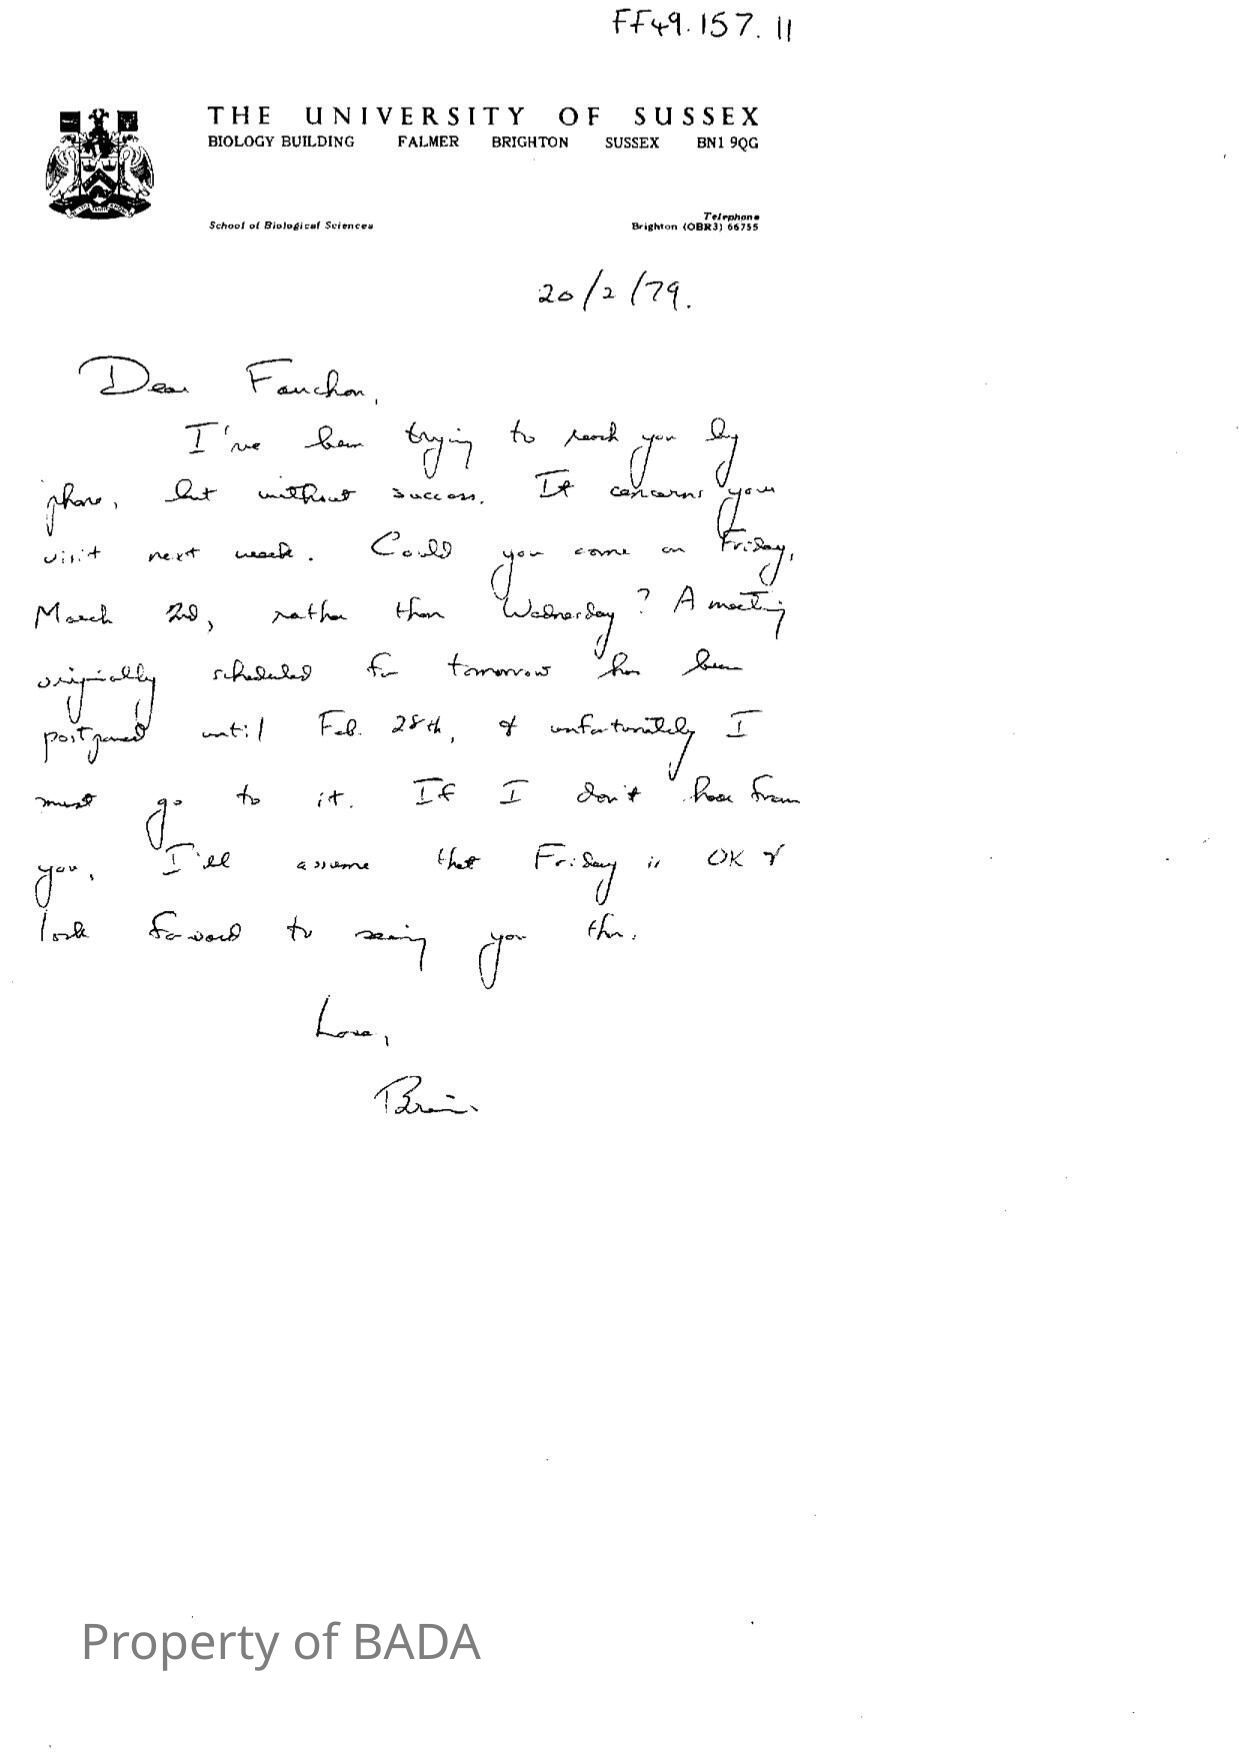 FF49.157.11
THE UNIVERSITY OF SUSSEX
BIOLOGY BUILDING FALMER BRIGHTON SUSSEX BN1 9QG
Telephone
School of Biological Sciences Brighton (OBR3) 66755
20/2/79.
Dear Fanchon,
I've been trying to reach you by
phone, but without success. It concerns your
visit next week. Could you come on Friday,
March 2nd, rather than Wednesday? A meeting
originally scheduled for tomorrow has been
postponed until Feb. 28th, & unfortunately I
must go to it. If I don't hear from
you, I'll assume that Friday is OK &
look forward to seeing you then.
Love,
Brian.
Property of BADA